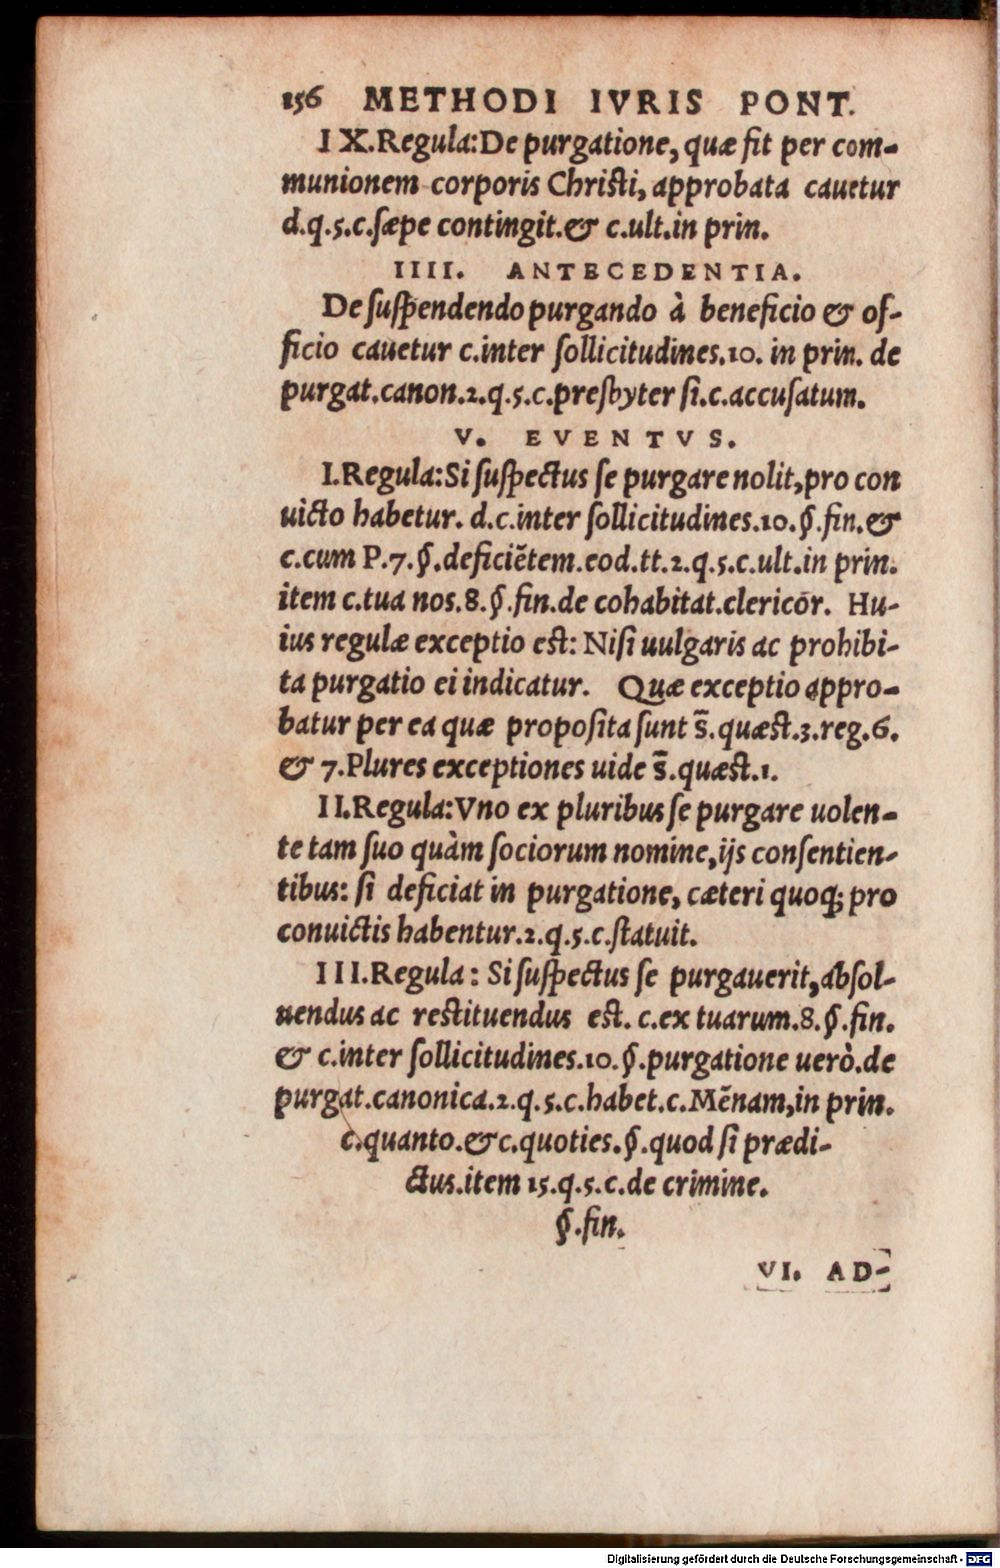 156 METHODI IVRIS PONT.
IX.Regula:De purgatione, quæ fit per com-
munionem corporis Chriſti, approbata cauetur
d.q.5.c.ſæpe contingit.& c.ult.in prin.
IIII. ANTECEDENTIA.
De ſuſpendendo purgando à beneficio & of-
ficio cauetur c.inter ſollicitudines.10. in prin. de
purgat.canon.2.q.5.c.preſbyter ſi.c.accuſatum.
V. EVENTVS.
I.Regula:Si ſuſpectus ſe purgare nolit,pro con
uicto habetur. d.c.inter ſollicitudines.10.§.fin.&
c.cum P.7.§.deficiẽtem.eod.tt.2.q.5.c.ult.in prin.
item c.tua nos.8.§.fin.de cohabitat.clericōr. Hu-
ius regulæ exceptio eſt: Niſi uulgaris ac prohibi-
ta purgatio ei indicatur. Quæ exceptio appro-
batur per ea quæ propoſita ſunt s̄.quæſt.3.reg.6.
& 7.Plures exceptiones uide s̄.quæſt.1.
II.Regula:Vno ex pluribus ſe purgare uolen-
te tam ſuo quàm ſociorum nomine,ijs conſentien-
tibus: ſi deficiat in purgatione, cæteri quoq; pro
conuictis habentur.2.q.5.c.ſtatuit.
III.Regula: Si ſuſpectus ſe purgauerit,abſol-
uendus ac reſtituendus eſt. c.ex tuarum.8.§.fin.
& c.inter ſollicitudines.10.§.purgatione uerò.de
purgat.canonica.2.q.5.c.habet.c.Mẽnam,in prin.
c.quanto.&c.quoties.§.quod ſi prædi-
ctus.item 15.q.5.c.de crimine.
§.fin.
VI. AD-
Digitalisierung gefördert durch die Deutsche Forschungsgemeinschaft - DFG